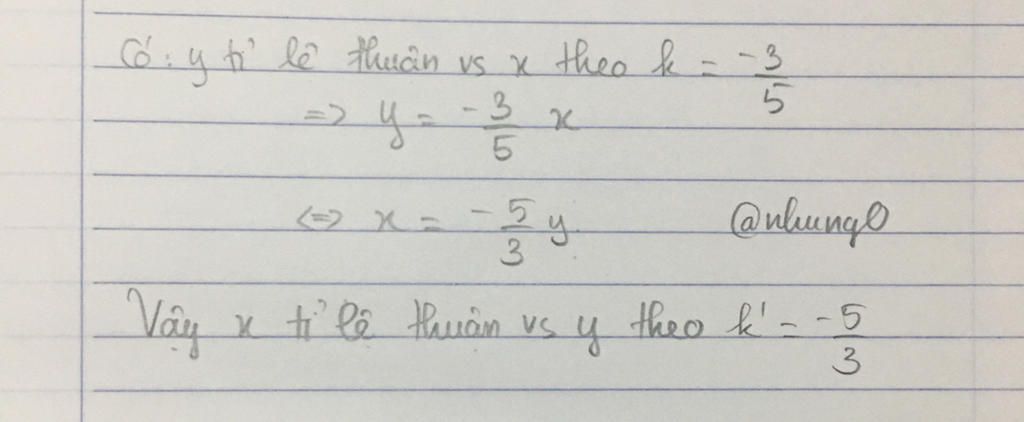 Có: y tỉ lệ thuận vs x theo k = -3/5
=> y = -3/5 x
<=> x = -5/3 y. @nhung0
Vậy x tỉ lệ thuận vs y theo k' = -5/3